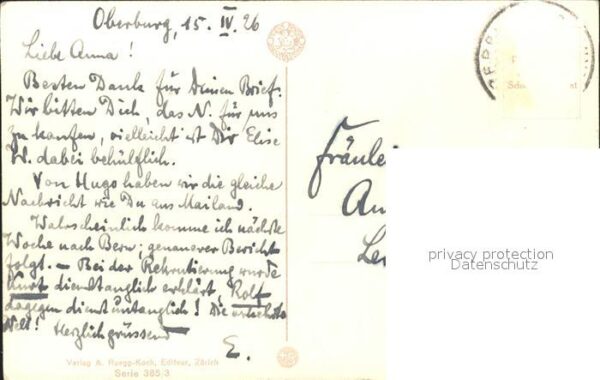 Oberburg, 15. IV. 26
Liebe Anna!
Besten Dank für Deinen Brief.
Wir bitten Dich, das N. für uns
zu kaufen, vielleicht ist Dir Elise
W. dabei behülflich.
Von Hugo haben wir die gleiche
Nachricht wie Du aus Mailand.
Wahrscheinlich komme ich nächste
Woche nach Bern; genauerer Bericht
folgt. — Bei der Rekrutierung wurde
Kurt diensttauglich erklärt, Rolf
dagegen dienstuntauglich! Die
Welt! Herzlich grüssend
E.
Verlag A. Ruegg-Koch, Editeur, Zürich
Serie 385/3
Fräulei
An
privacy protection
Datenschutz